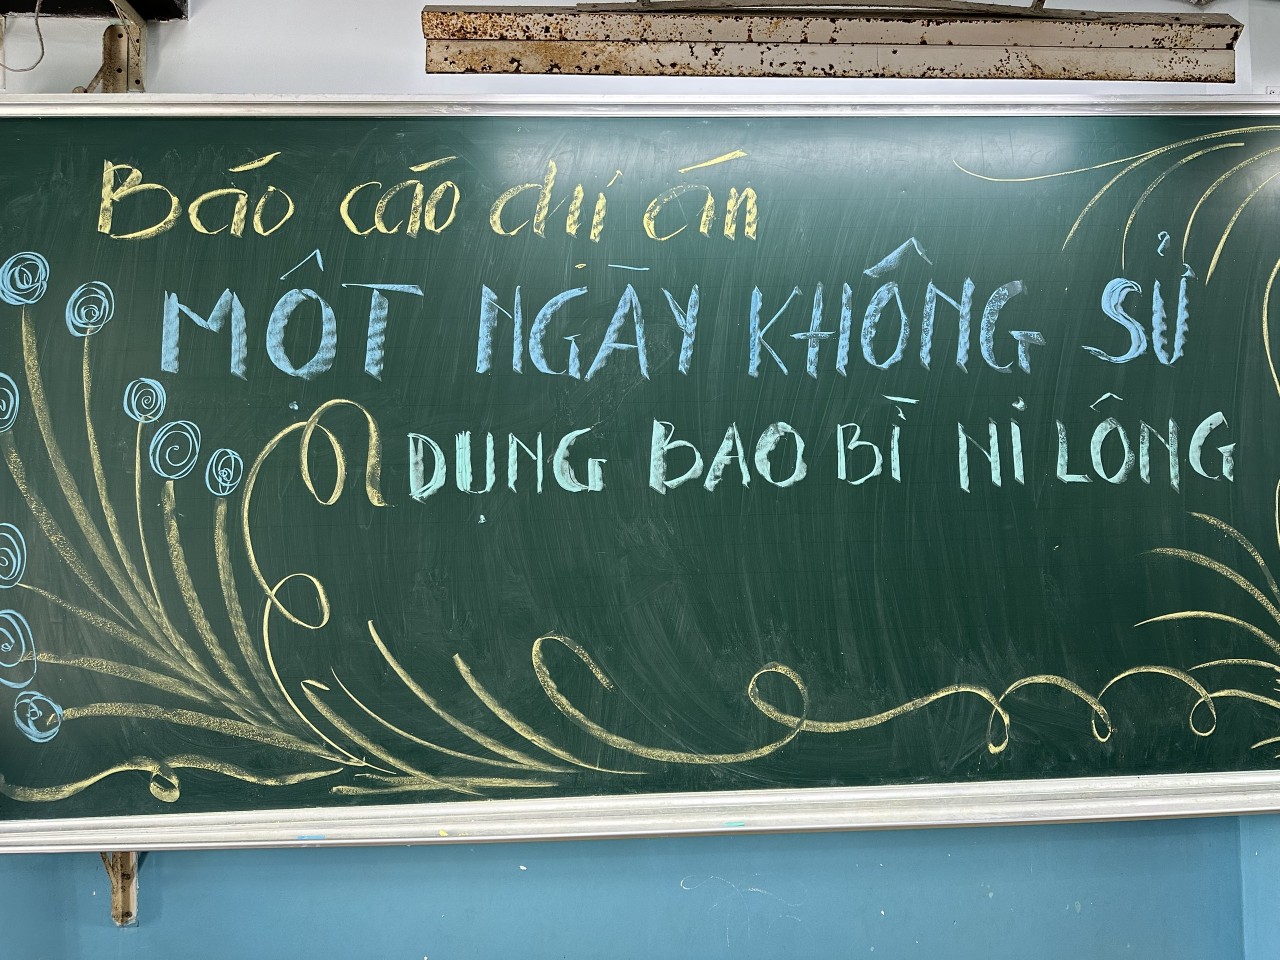 Báo cáo dự án
MỘT NGÀY KHÔNG SỬ
DỤNG BAO BÌ NI LÔNG